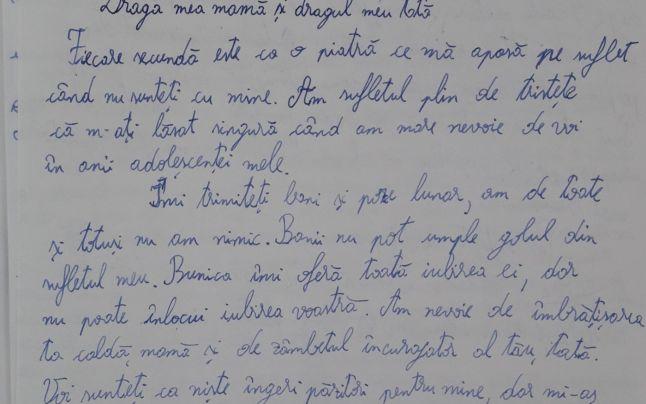 Draga mea mamă și dragul meu tată
Fiecare secundă este ca o piatră ce mă apasă pe suflet
când nu sunteți cu mine. Am sufletul plin de tristețe
că m-ați lăsat singură când am mare nevoie de voi
în anii adolescenței mele.
Îmi trimiteți bani și poze lunar, am de toate
și totuși nu am nimic. Banii nu pot umple golul din
sufletul meu. Bunica îmi oferă toată iubirea ei, dar
nu poate înlocui iubirea voastră. Am nevoie de îmbrățișarea
ta caldă, mamă și de zâmbetul încurajator al tău, tată.
Voi sunteți ca niște îngeri păzitori pentru mine, dar mi-aș